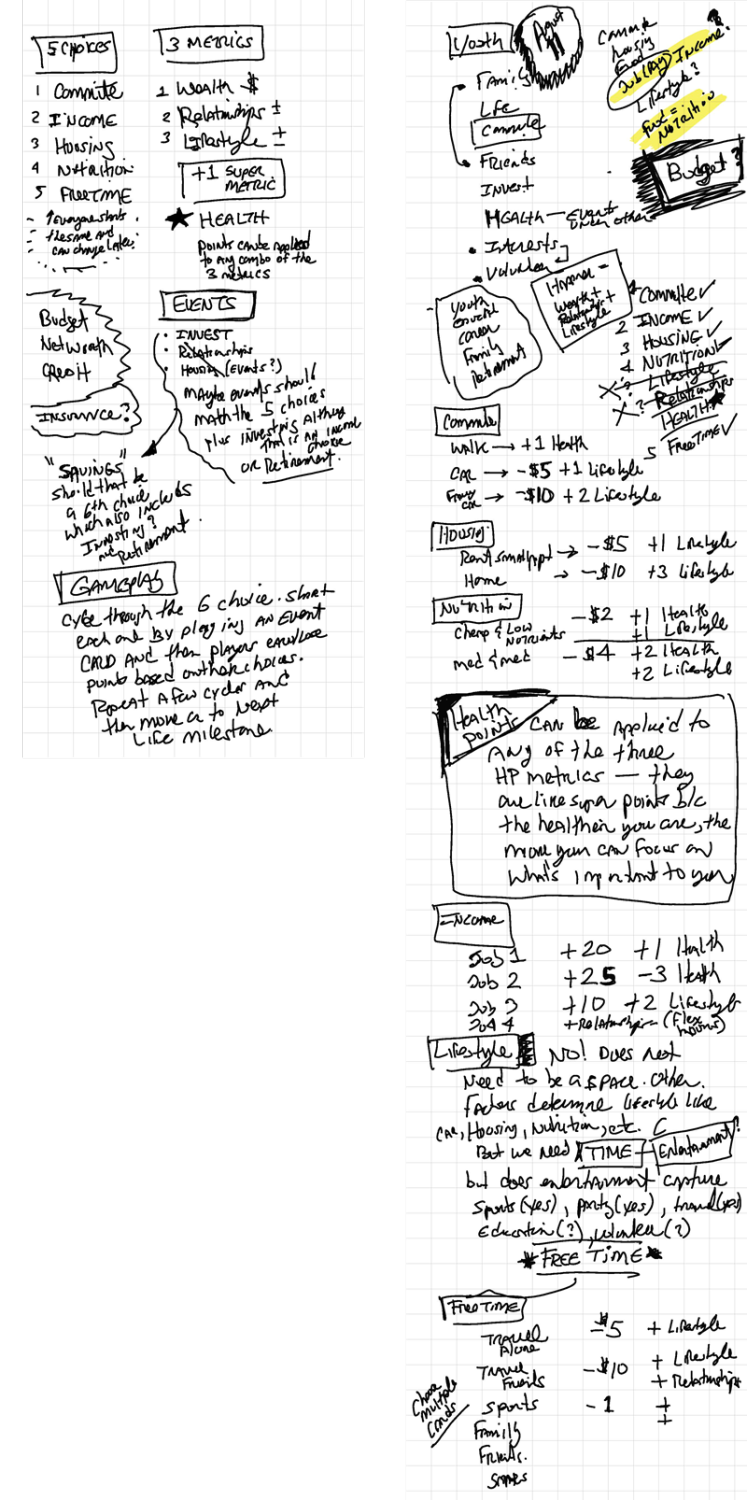 5 CHOICES
1 Commute
2 INCOME
3 Housing
4 Nutrition
5 FREETIME
- Everyone starts
- the same and
- can change later.
3 METRICS
1 Wealth $
2 Relationships ±
3 Lifestyle ±
+1 SUPER
METRIC
★ HEALTH
points can be applied
to any combo of the
3 metrics
Budget
Net worth
Credit
INSURANCE?
EVENTS
• INVEST
• Relationships
• Housing (Events?)
Maybe events should
match the 5 choices
plus investing Although
that is an income
choice
or Retirement.
"SAVINGS"
should that be
a 6th choice
which also includes
Investing?
Retirement.
GAMEPLAY
cycle through the 6 choice. Start
each one by playing AN EVENT
CARD AND then players earn/lose
points based on their choices.
Repeat a few cycles AND
then move on to next
Life milestone
Youth
• Family
Life
Commute
• Friends
Invest
HEALTH — Events
under other
• Interests
• Volunteer
Commute
housing
Food
Job (Pay) Income?
Lifestyle?
Food =
Nutrition
Budget?
youth
career
Family
Retirement
Wealth +
Relationships +
Lifestyle
1 Commute ✓
2 INCOME ✓
3 HOUSING ✓
4 NUTRITION ✓
X ? Lifestyle
X ? Relationships
HEALTH ★
5 FREETIME ✓
Commute
Walk → +1 Health
CAR → -$5 +1 Lifestyle
Fancy
car → -$10 +2 Lifestyle
Housing
Rent small appt → -$5 +1 Lifestyle
Home → -$10 +3 Lifestyle
Nutrition
Cheap & Low
Nutrients -$2 +1 Health
+1 Lifestyle
med & med -$4 +2 Health
+2 Lifestyle
Health
Points CAN be Applied to
Any of the three
HP metrics — they
are like super points b/c
the healthier you are, the
more you can focus on
what's important to you
INCOME
Job 1 +20 +1 Health
Job 2 +25 -3 Health
Job 3 +10 +2 Lifestyle
Job 4 + Relationships (Flex
hours)
Lifestyle NO! Does not
Need to be a SPACE. Other
factors determine lifestyle like
car, Housing, Nutrition, etc.
But we need TIME — Entertainment?
but does entertainment capture
sports (yes), party (yes), travel (yes)
Education (?), volunteer (?)
★ FREE TIME ★
FREE TIME
TRAVEL
Alone -$5 + Lifestyle
TRAVEL
Friends -$10 + Lifestyle
+ Relationships
Sports -1 +
+
Family
Friends.
Choose
multiple
cards